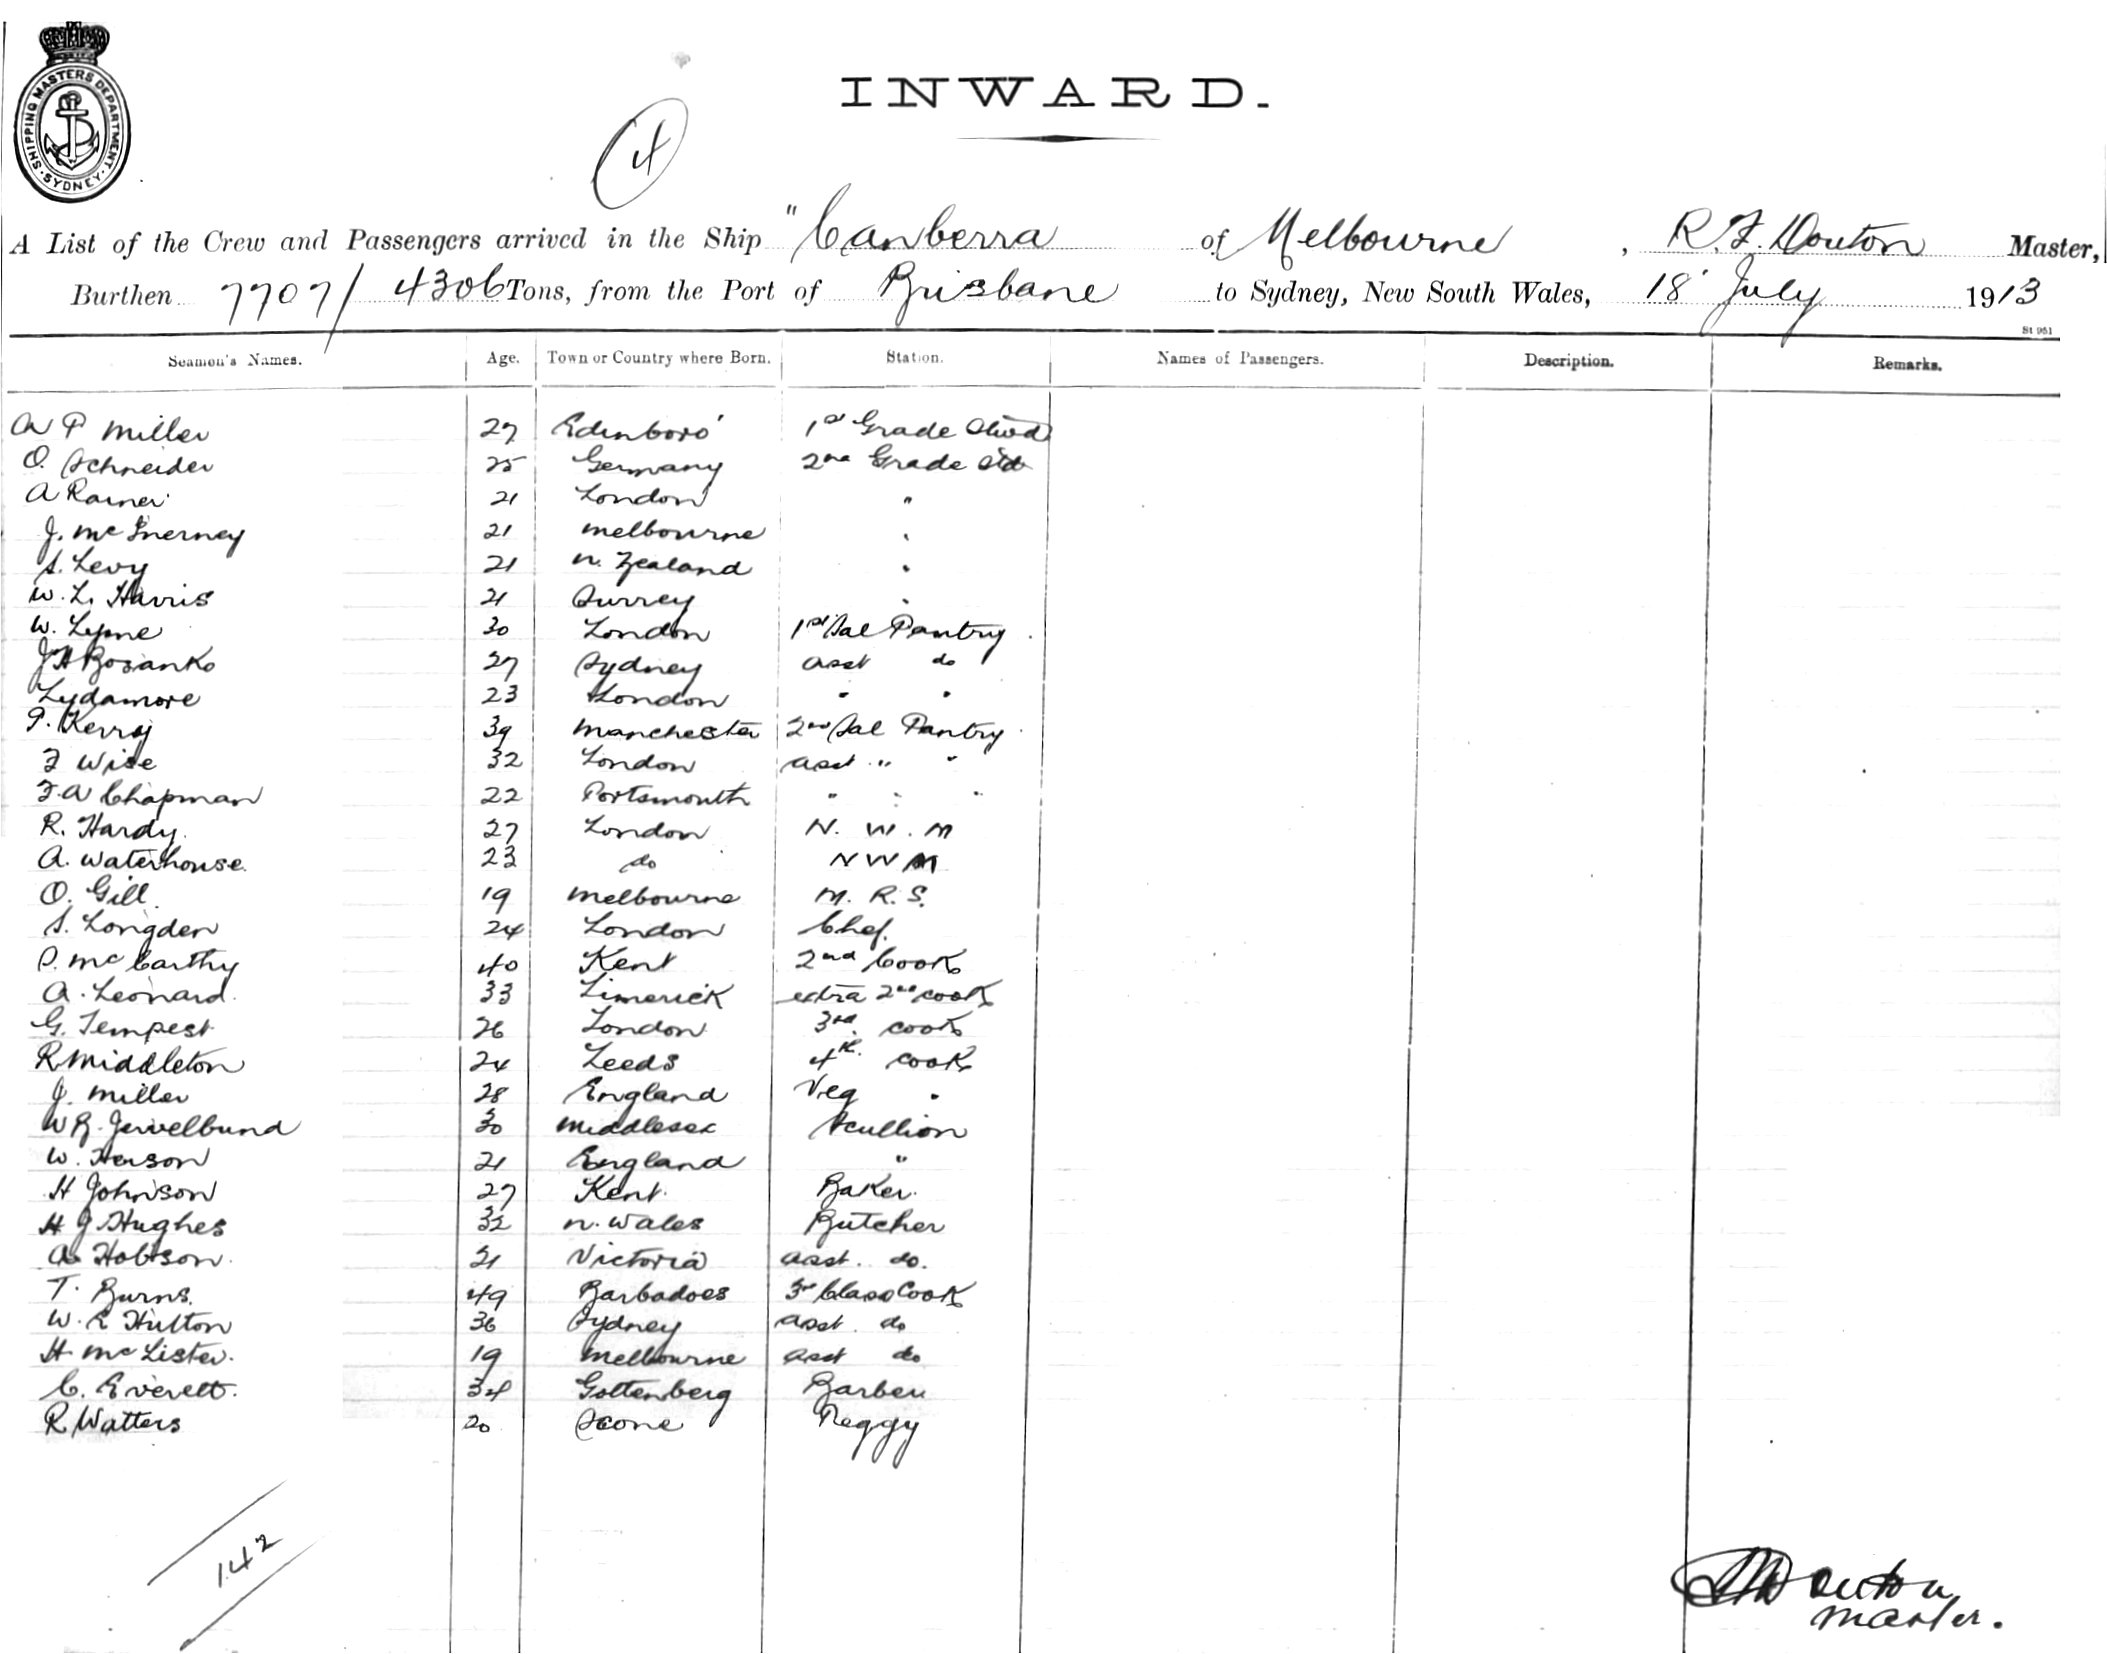 SHIPPING MASTERS DEPARTMENT
SYDNEY
INWARD.
4
A List of the Crew and Passengers arrived in the Ship "Canberra of Melbourne, R. F. Douton Master,
Burthen 7707/4306 Tons, from the Port of Brisbane to Sydney, New South Wales, 18' July 1913
St 951
Seamen's Names. Age. Town or Country where Born. Station. Names of Passengers. Description. Remarks.
A P Miller 27 Edinboro' 1st Grade Stwd
O. Schneider 25 Germany 2nd Grade Std
A Rainer 21 London "
J. McInerney 21 Melbourne "
S. Levy 21 N. Zealand "
W. L. Harris 21 Surrey "
W. Lyne 30 London 1st Sal Pantry
J H Bosanko 27 Sydney asst do
Lydamore 23 London " "
P. Kerry 39 Manchester 2nd Sal Pantry
F Wise 32 London asst " "
F. A Chapman 22 Portsmouth " " "
R. Hardy. 27 London N. W. M
A. Waterhouse. 23 do N W M
O. Gill. 19 Melbourne M. R. S.
S. Longden 24 London Chef.
P. McCarthy 40 Kent 2nd Cook
A. Leonard. 33 Limerick extra 2nd cook
G. Tempest 26 London 3rd. cook
R Middleton 24 Leeds 4th. cook
J. Miller 28 England Veg "
W R. Jewelbund 30 Middlesex Scullion
W. Henson 21 England "
H Johnson 27 Kent. Baker.
H J Hughes 32 N. Wales Butcher
A. Hobson. 21 Victoria asst. do.
T. Burns. 49 Barbadoes 3rd Class Cook
W. E Hutton 36 Sydney asst. do
H McLister. 19 Melbourne asst do
C. Everett. 34 Gottenberg Barber
R Watters 20 Scone Peggy
142
Douton
Master.